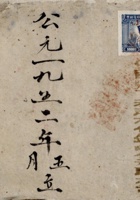 公元一九五二年五月立